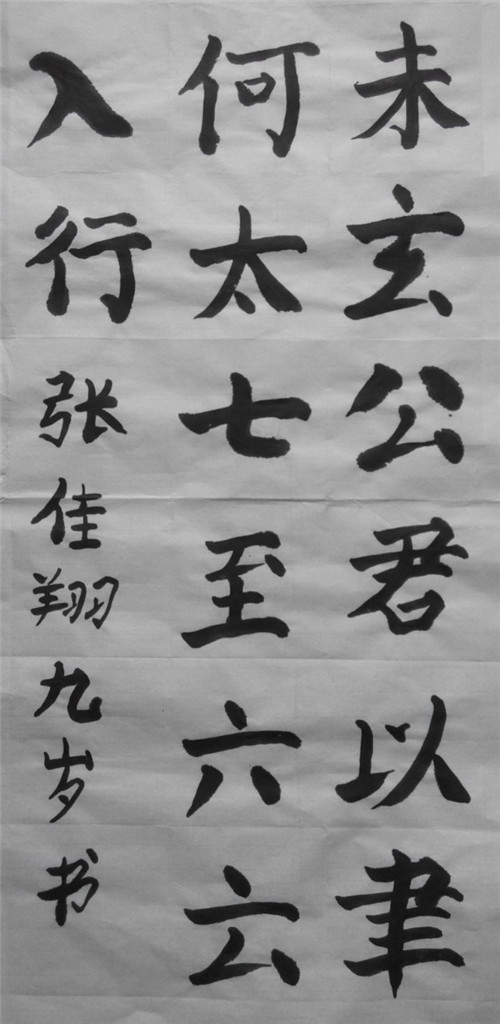 未玄公君以聿
何太七至六云
入行张佳翔九岁书